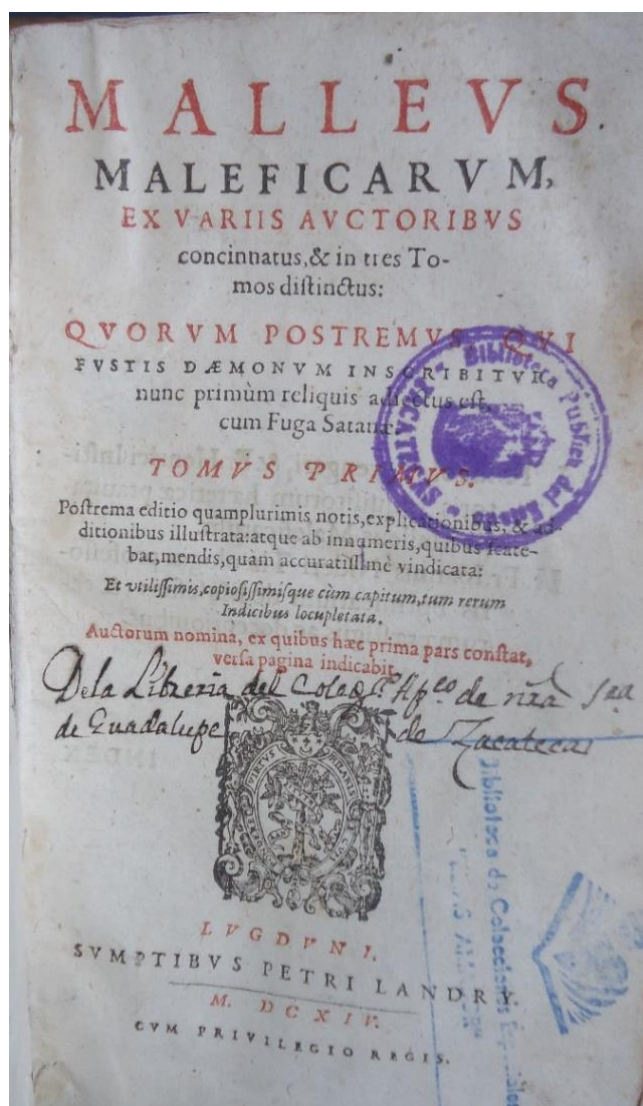 MALLEVS
MALEFICARVM,
EX VARIIS AVCTORIBVS
concinnatus, & in tres To-
mos distinctus:
QVORVM POSTREMVS, QVI
FVSTIS DÆMONVM INSCRIBITVR,
nunc primùm reliquis adiectus est,
cum Fuga Satanæ.
TOMVS PRIMVS.
Postrema editio quamplurimis notis, explicationibus, & ad-
ditionibus illustrata: atque ab innumeris, quibus scate-
bat, mendis, quàm accuratissimè vindicata:
Et vtilissimis, copiosissimisque cùm capitum, tum rerum
Indicibus locupletata.
Auctorum nomina, ex quibus hæc prima pars constat,
versa pagina indicabit.
De la Libreria del Coleg.º Ap.co de nra Sra
de Guadalupe de Zacatecas
LVGDVNI,
SVMPTIBVS PETRI LANDRY.
M. DCXIV.
CVM PRIVILEGIO REGIS.
Biblioteca Publica del Estado
ZACATECAS
Biblioteca de Colecciones Especiales
INDEX